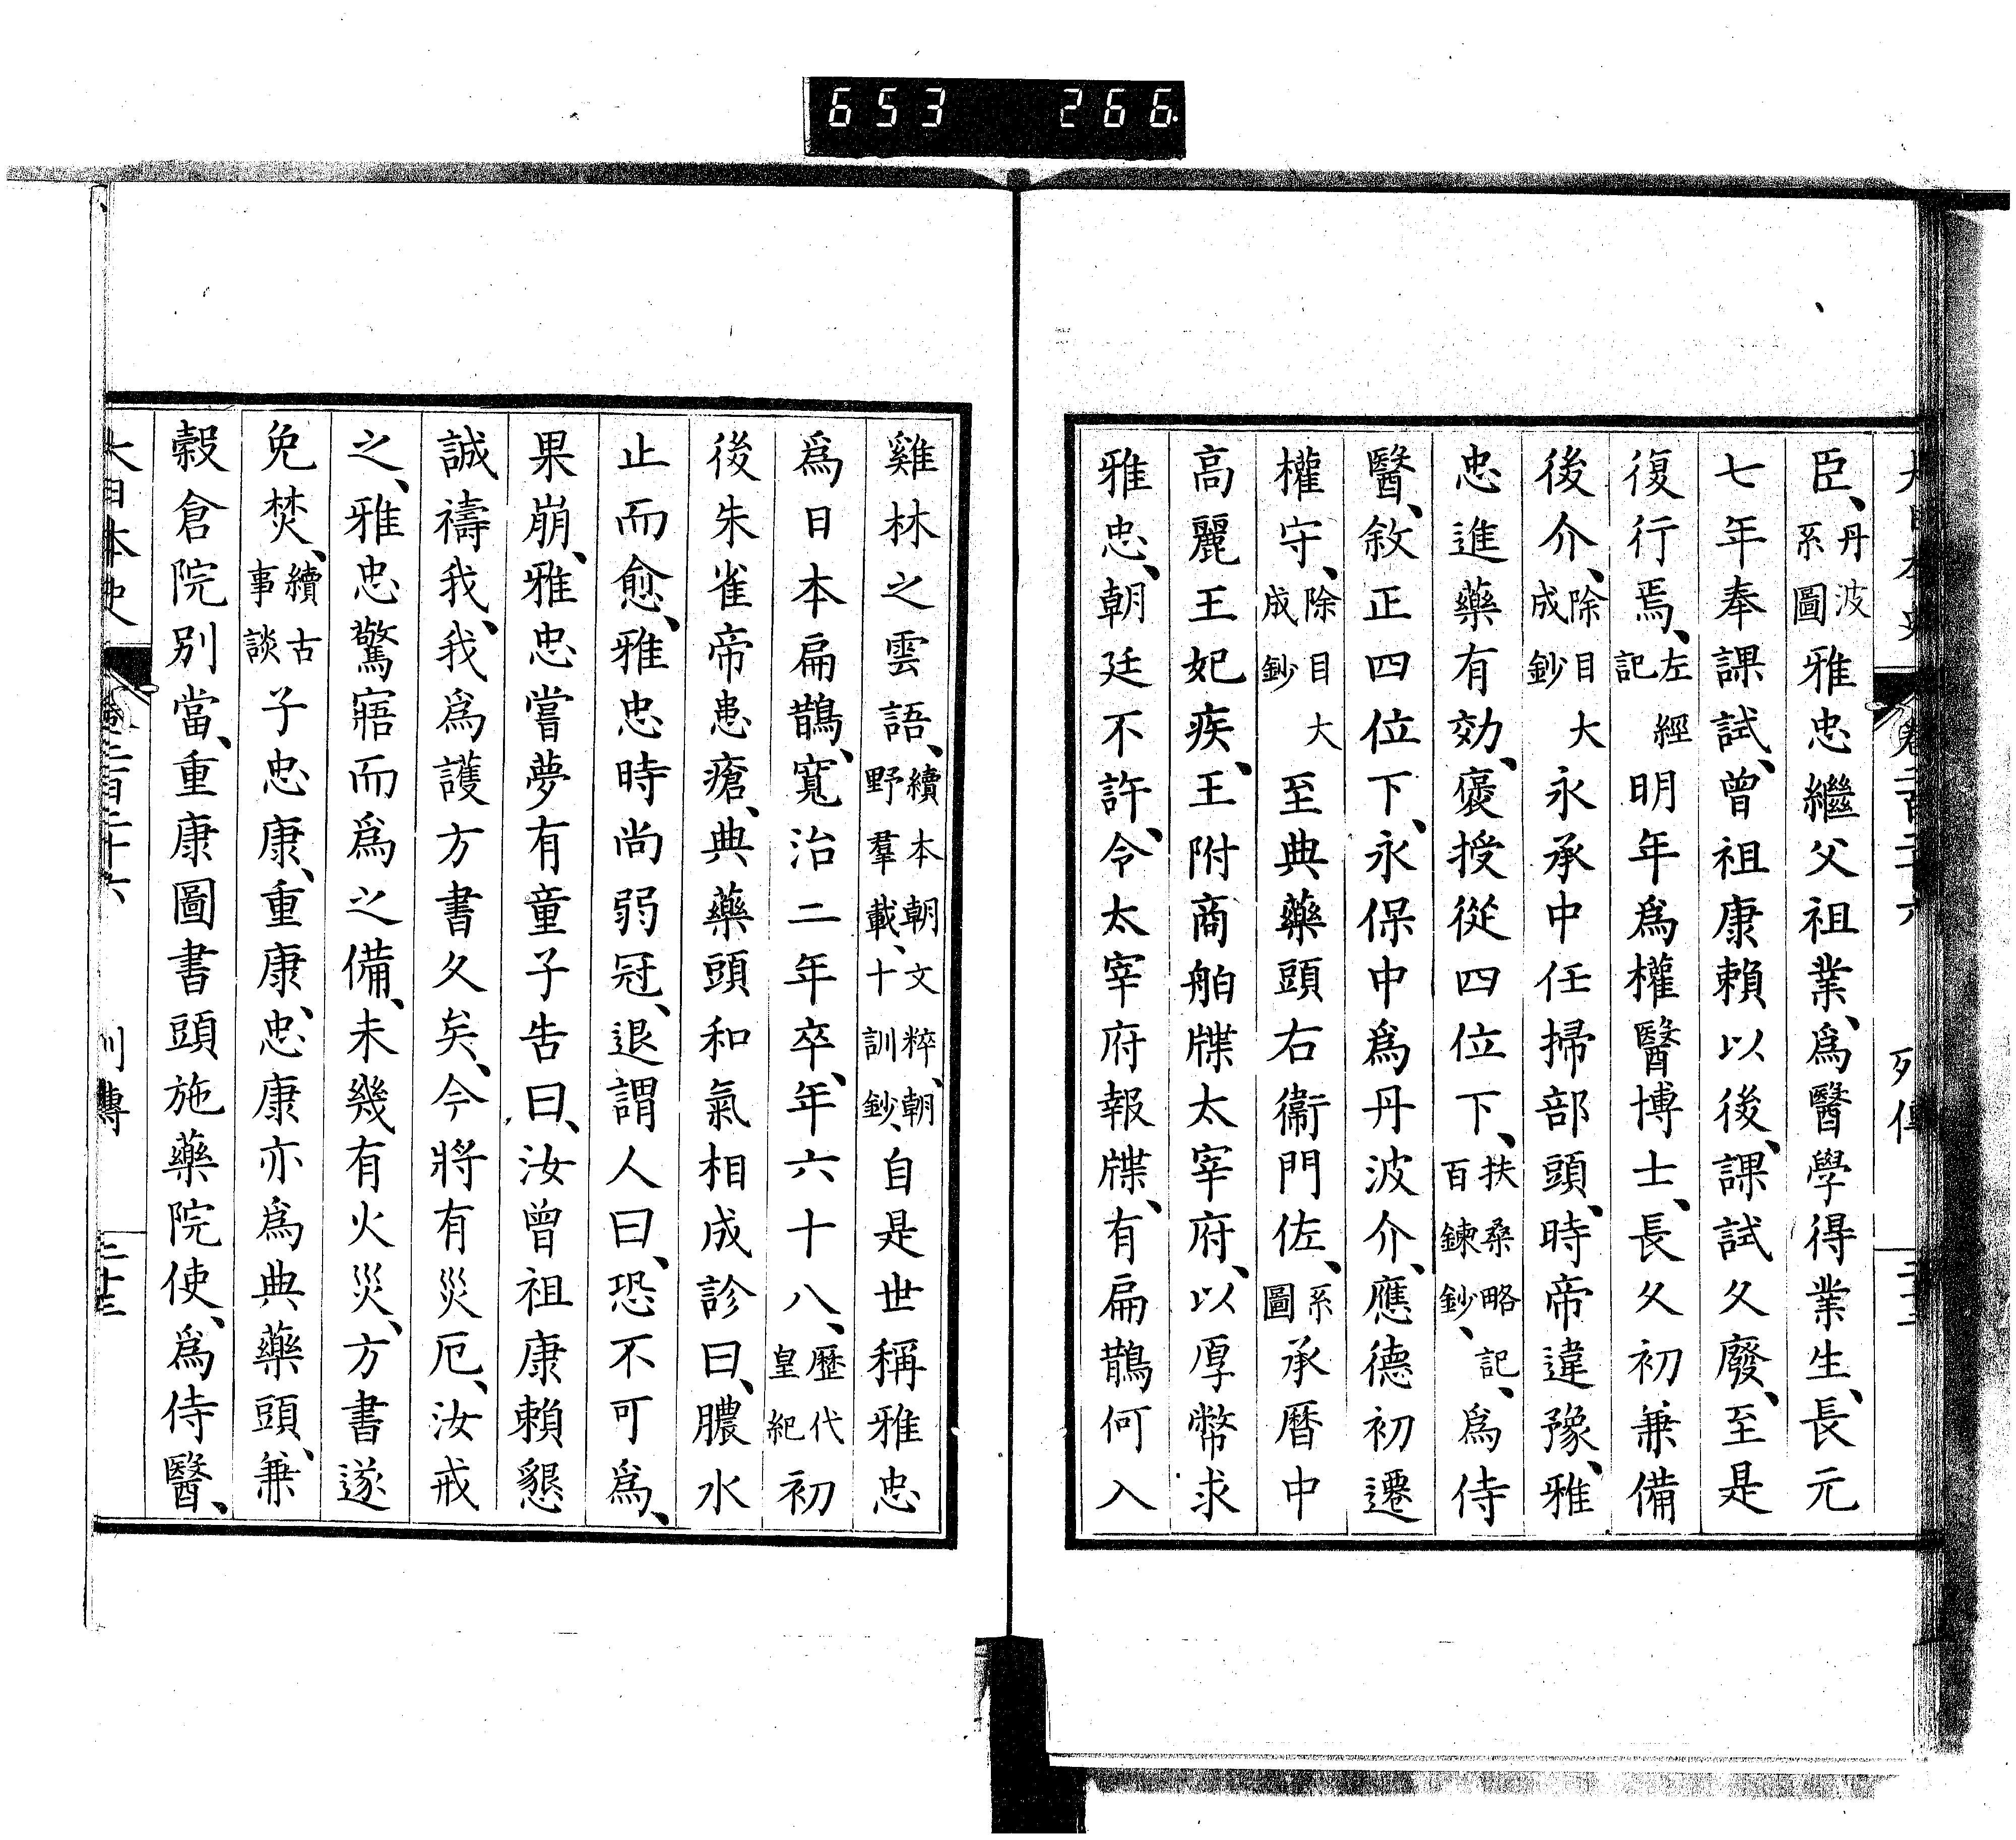 653 266
大日本史 卷二百二十六 列傳
臣、丹波系圖雅忠繼父祖業、爲醫學得業生、長元
七年奉課試、曾祖康賴以後、課試久廢、至是
復行焉、左經記明年爲權醫博士、長久初兼備
後介、大除目成鈔永承中任掃部頭、時帝違豫、雅
忠進藥有効、褒授從四位下、扶桑略記、百鍊鈔、爲侍
醫、敘正四位下、永保中爲丹波介、應德初遷
權守、大除目成鈔至典藥頭右衞門佐、系圖承曆中
高麗王王妃疾、王附商舶牒太宰府、以厚幣求
雅忠、朝廷不許、令太宰府報牒、有扁鵲何入
雞林之雲語、續本朝文粹、朝野羣載、十訓鈔、自是世稱雅忠
爲日本扁鵲、寬治二年卒、年六十八、歷代皇紀初
後朱雀帝患瘡、典藥頭和氣相成診曰、膿水
止而愈、雅忠時尚弱冠、退謂人曰、恐不可爲、
果崩、雅忠嘗夢有童子告曰、汝曾祖康賴懇
誠禱我、我爲護方書久矣、今將有災厄、汝戒
之、雅忠驚寤而爲之備、未幾有火災、方書遂
免焚、續古事談子忠康、重康、忠康亦爲典藥頭、兼
穀倉院別當、重康圖書頭施藥院使、爲侍醫、
大日本史 卷二百二十六 列傳 二十三